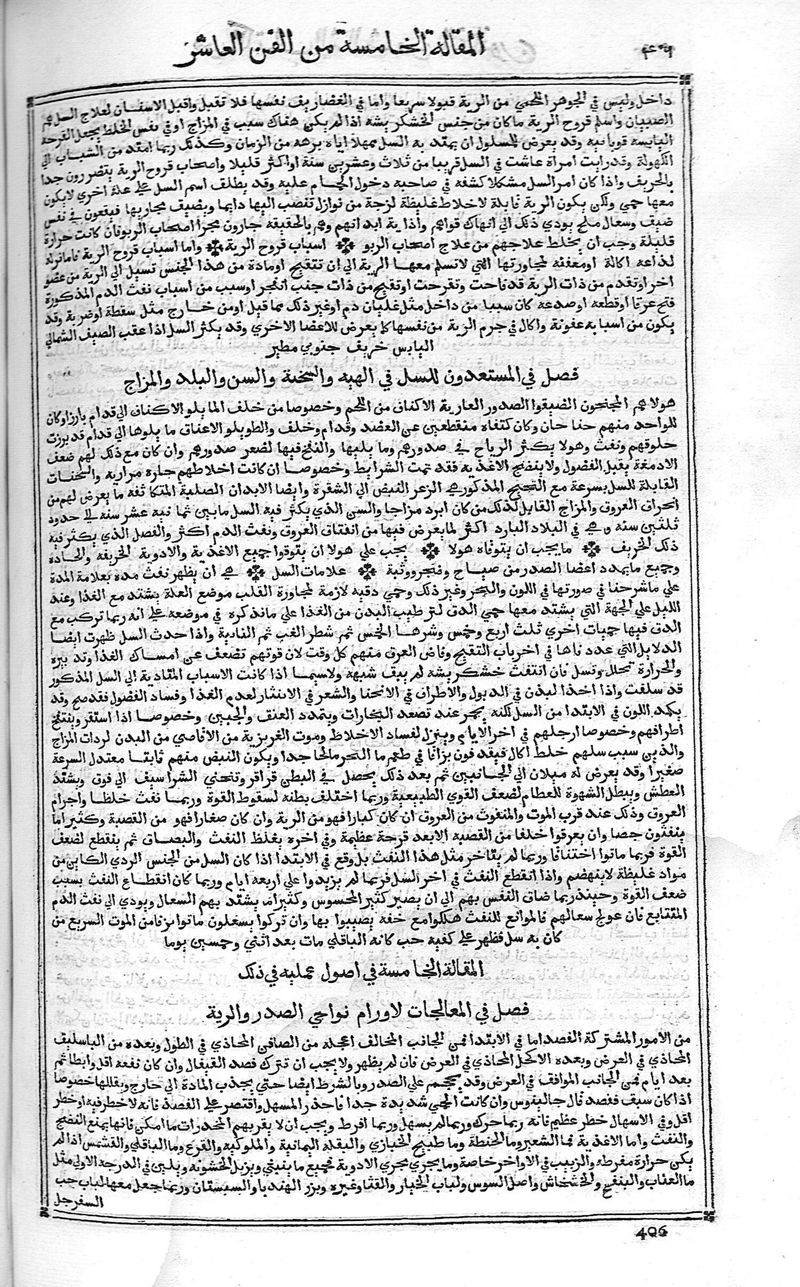 المقالة الخامسة من الفن العاشر
داخل وليس في الجوهر اللحمي من الرية قبولا سريعا واما في الغضاريف نفسها فلا تقبل واقبل الاسنان لعلاج السل هم
الصبيان واسلم قروح الرية ما كان من جنس الخشكريشه اذا لم يكن هناك سبب في المزاج او في نفس الخلط يجعل القرحه
اليابسه قوبانيه وقد يعرض للمسلول ان يمتد به السل ممهلا اياه برهه من الزمان وكذلك ربما امتد من الشباب الي
الكهولة وقد رايت امراة عاشت في السل قريبا من ثلاث وعشرين سنة او اكثر قليلا واصحاب قروح الرية يتضررون جدا
بالخريف واذا كان امر السل مشكلا كشفه في صاحبه دخول الحمام عليه وقد يطلق اسم السل علي علة اخري لا يكون
معها حمي ولكن يكون الرية قابلة لاخلاط غليظة لزجة من نوازل تنصب اليها دايما ويضيف مجاريها فيقعون في نفس
ضيف وسعال ملح يودي ذلك الي انهاك قواهم واذابة ابدانهم وهم بالحقيقه جارون مجرا اصحاب الربو فان كانت حرارة
قليلة وجب ان يخلط علاجهم من علاج اصحاب الربو ❖ اسباب قروح الرية ❖ واما اسباب قروح الرية فاما نزلة
لذاعه اكالة او معفنه لمجاورتها التي لا تسلم معها الرية الي ان تنقيح او مادة من هذا الجنس تسيل الي الرية من عضو
اخر او تقدم من ذات الرية قد ناحت وتقرحت او تقيح من ذات جنب انفجر او سبب من اسباب نفث الدم المذكورة
فتح عرقا او قطعه او صدعه كان سببا من داخل مثل غليان دم او غير ذلك مما قيل او من خارج مثل سقطة او ضربة وقد
يكون من اسبابه عفونة واكال في جرم الرية من نفسها كما يعرض للاعضا الاخري وقد يكثر السل اذا عقب الصيف الشمالي
اليابس خريف جنوبي مطير
فصل في المستعدون للسل في الهيه والسخنية والسن والبلد والمزاج
هولا هم المجنحون الضيقوا الصدور العارية الاكتاف من اللحم وخصوصا من خلف المايلوا الاكتاف الي قدام بارزا وكان
للواحد منهم جناحان وكان كتفاه منقطعين عن العضد وقدام وخلف والطويلو الاعناق مايلوها الي قدام قد برزت
حلوقهم ونغث وهولا يكثر الرياح في صدورهم وما يليها والنفخ فيها لصغر صدورهم وان كان مع ذلك لهم ضعف
الادمغة يقبل الفضول ولا ينضج الاغذيه فقد تمت الشرايط وخصوصا ان كانت اخلاطهم حارة مرارية والسخنات
القابلة للسل بسرعة مع التجنح المذكور هي الزعر البيض الي الشقرة وايضا الابدان الصلبة المتكاثفه ما يعرض لهم من
انخراق العروق والمزاج القابل لذلك من كان ابرد مزاجا والسن الذي يكثر فيه السل ما بين ثمانيه عشر سنه الي حدود
ثلثين سنه وهي في البلاد البارد اكثر لما يعرض فيها من انفتاق العروق ونفث الدم اكثر والفصل الذي يكثر فيه
ذلك الخريف ❖ ما يجب ان يتوقاه هولا ❖ يجب علي هولا ان يتوقوا جميع الاغذية والادوية الحريفه والحادة
وجميع ما يمدد اعضا الصدر من صياح وضجر ووثبة ❖ علامات السل ❖ هي ان يظهر نفث مدة بعلامة المدة
علي ما شرحنا في صورتها في اللون والبحر وغير ذلك وحمي دقيه لازمة لمجاورة القلب موضع العلة يشتد مع الغذا وعند
الليل علي الجهة التي يشتد معها حمي الدق لترطيب البدن من الغذا علي ما نذكره في موضعه علي انه ربما تركب مع
الدق فيها حميات اخري ثلث اربع وخمس وشرها الخمس ثم شطر الغب ثم النايبة واذا حدث السل ظهرت ايضا
الدلايل التي عددناها في اخر باب التقيح وفاض العرق منهم كل وقت لان قوتهم تضعف عن امساك الغذا وتدبيره
والحرارة تحلل وتسل فان انتفثت خشكريشه لم يبق شبهه ولا سيما اذا كانت الاسباب المتقادية الي السل المذكور
قد سلفت واذا اخذا لبدن في الذبول والاطراف في الانحنا والشعر في الانتثار لعدم الغذا وفساد الفضول فقد صح وقد
يكمد اللون في الابتدا من السل لكنه يحمر عند تصعد البخارات ويتمدد العنق والجبين وخصوصا اذا استقر وينتفخ
اطرافهم وخصوصا ارجلهم في اخر الايام ويتزل لفساد الاخلاط وموت الغريزية من الاقاصي من البدن لردات المزاج
والذين سبب سلهم خلط اكال فيقذفون بزاقا في طعم ما البحر مالحا جدا ويكون النبض منهم ثابتا معتدل السرعة
صغيرا وقد يعرض له ميلان الي الجانبين ثم بعد ذلك يحصل في البطن قراقر وتنحني الشراسيف الي فوق ويشتد
العطش ويبطل الشهوة للطعام لضعف القوي الطبيعية وربما اختلف بطنه لسقوط القوة وربما نفث خلطا واجرام
العروق وذلك عند قرب الموت والمنفوث من العروق ان كان كبارا فهو من الرية وان كان صغارا فهو من القصبة وكثيرا ما
ينفثون جصا وان يعرفوا خلعا من القصبه الابعد قرحة عظيمة وفي اخره يغلظ النفث والبصاق ثم ينقطع لضعف
القوة فربما ماتوا اختناقا وربما لم يتاخر مثل هذا النفث بل وقع في الابتدا اذا كان السل من الجنس الردي الكاين من
مواد غليظة لا ينهضم واذا انقطع النفث في اخر السل فربما لم يزيدوا علي اربعه ايام وربما كان انقطاع النفث بسبب
ضعف القوة وحينذ ربما ضاق النفس بهم الي ان يصير كثير المحسوس وكثيرا ما يشتد بهم السعال ويودي الي نفث الدم
المتتابع فان عولج سعالهم فالموانع للنفث هلكوا مع خفة يصيبوا بها وان تركوا يسعلون ماتوا نزفا من الموت السريع من
كان به سل فظهر علي كفيه حب كانه الباقلي مات بعد اثني وخمسين يوما
المقالة الخامسة في اصول عملية في ذلك
فصل في المعالجات لاورام نواحي الصدر والرية
من الامور المشتركة الفصد اما في الابتدا فمن الجانب المخالف اعجله من الصافن المحاذي في الطول وبعده من الباسليق
المحاذي في العرض وبعده الاكحل المحاذي في العرض فان لم يظهر ولا يجب ان تترك فصد القيفال وان كان نفعه اقل وابطا ثم
بعد ايام فمن الجانب الموافق في العرض وقد يحجم علي الصدر وبالشرط ايضا حتي يجذب المادة الي خارج ويقللها خصوصا
اذا كان سبق فصد قال جالينوس وان كانت الحمي شديدة جدا فاحذر المسهل واقتصر علي الفصد فانه لا خطر فيه او خطر
اقل وفي الاسهال خطر عظيم فانه ربما حركه وربما لم يسهل وربما افرط ويجب ان لا يقربهم المخدرات ما امكن فانها يمنع النضج
والنفث واما الاغذية فما الشعير وما الحنطة وما طبيخ الخبازي والبقلة اليمانية والملوكيه والقرع وما الباقلي والقشمس اذا لم
يكن حرارة مفرطه والزبيب في الاواخر خاصة وما يجري مجري الادوية فجميع ما ينبتي ويزيل الخشونه ويلين في الدرجة الاولي مثل
ما العناب والبنفسج والخشخاش واصل السوس ولباب الخيار والقثا وغيره وبزر الهندبا والسبستان وربما جعل معها لباب حب
السفرجل
406